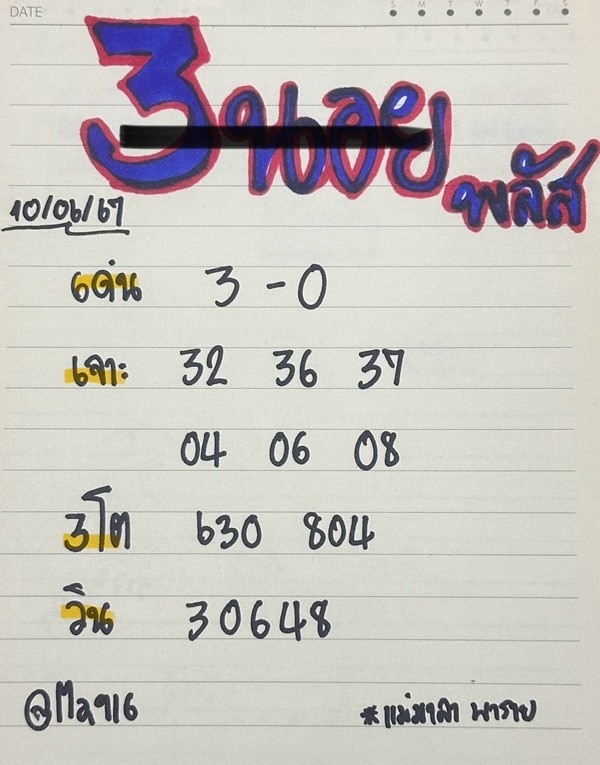 DATE
S M T W T F S
ฮานอย
พลัส
10/06/67
เด่น 3 - 0
เจาะ 32 36 37
04 06 08
3โต 630 804
วิน 30648
#แม่มาลา พารวย